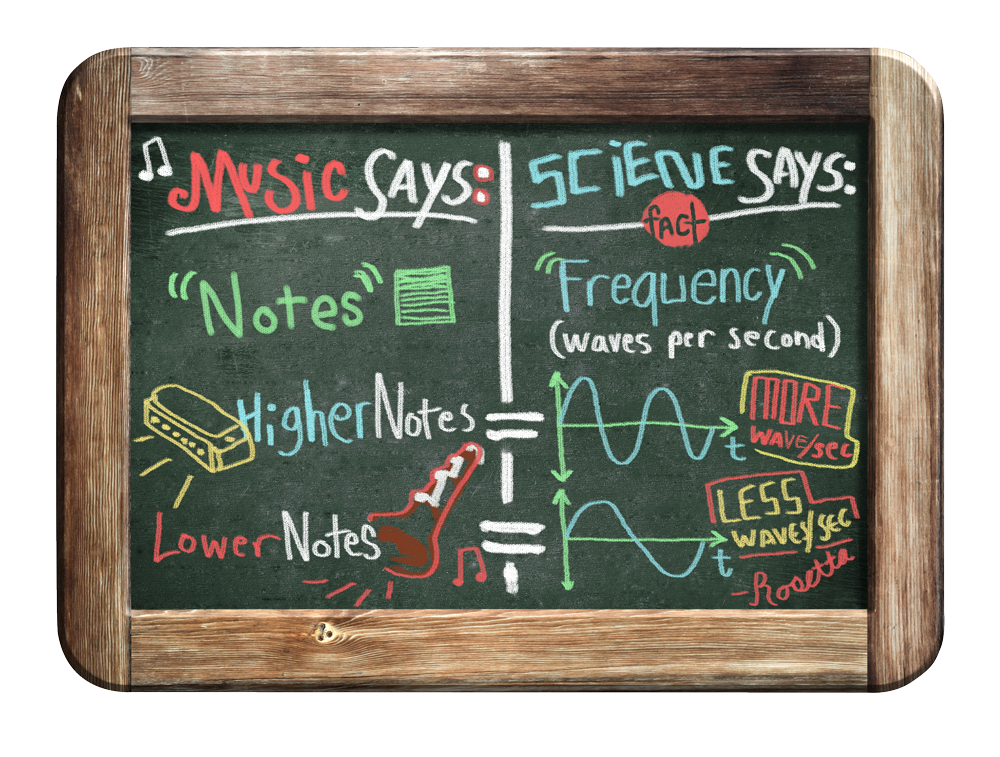 Music SAYS:
"Notes"
Higher Notes
Lower Notes
SCiENE SAYS:
fact
"Frequency"
(waves per second)
t
MORE
WAVE/sec
t
LESS
WAVE/SEC
-Rosetta